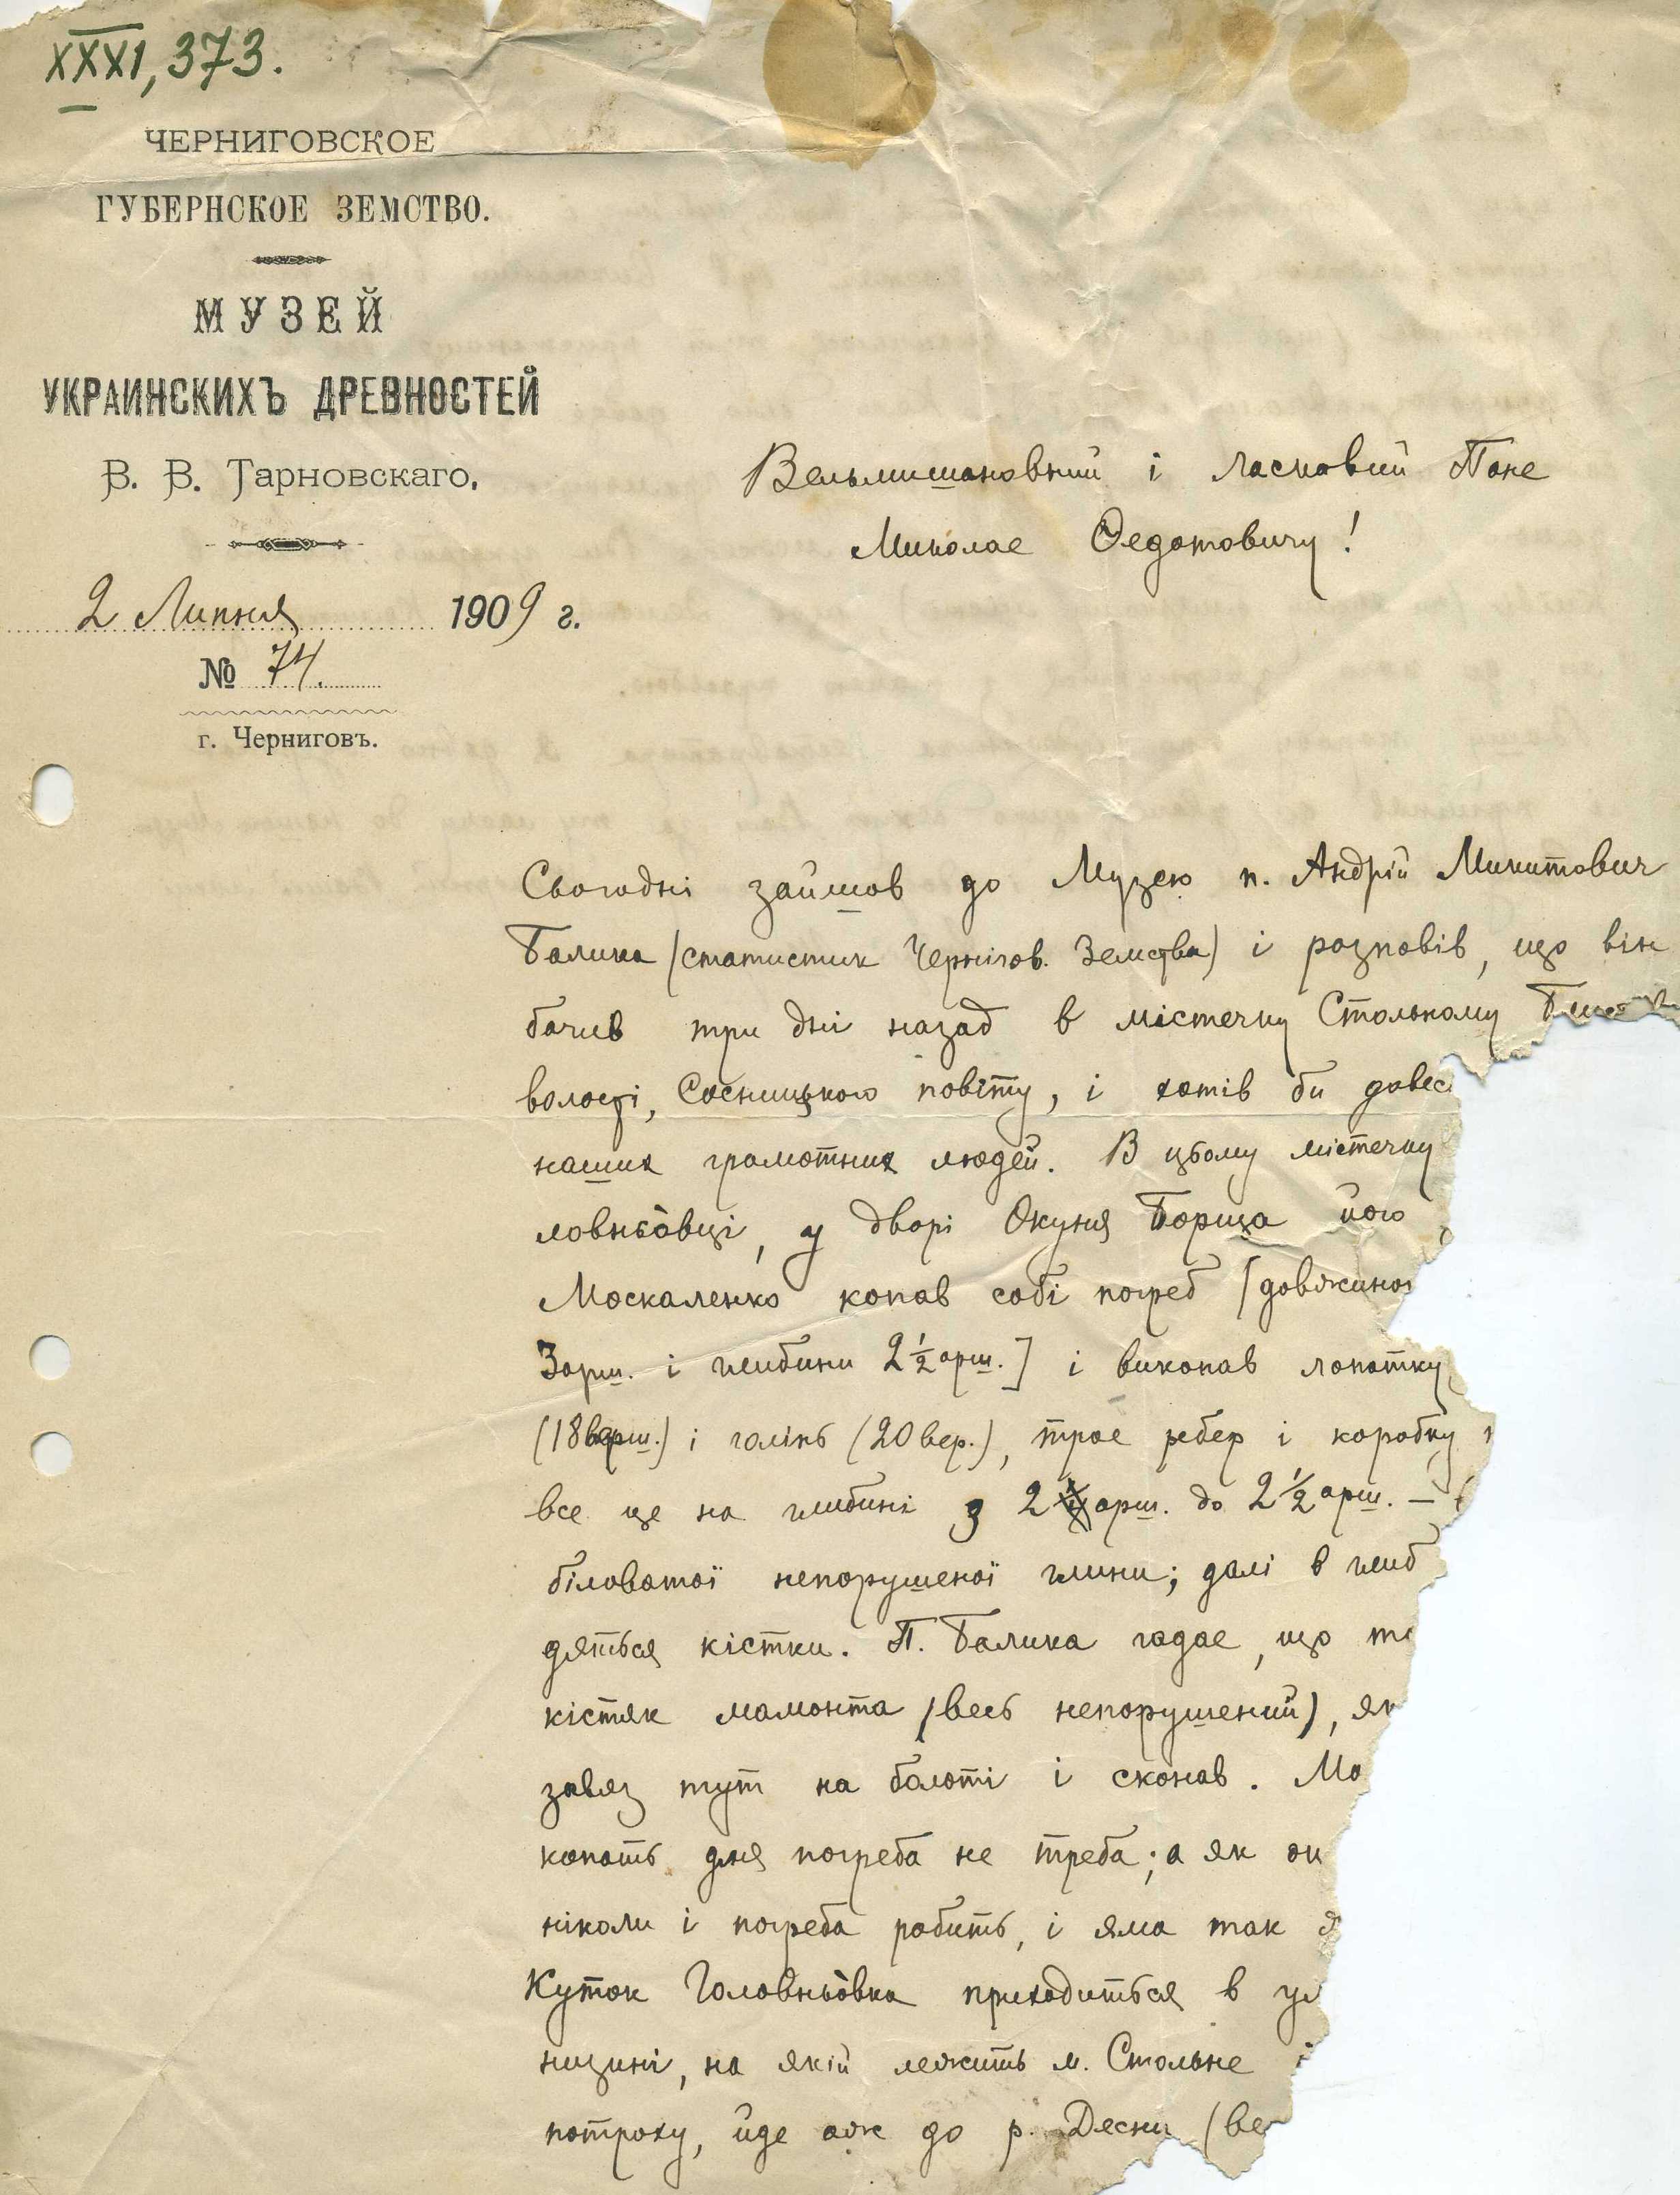 XXXI, 373.
ЧЕРНИГОВСКОЕ
ГУБЕРНСКОЕ ЗЕМСТВО.
МУЗЕЙ
УКРАИНСКИХЪ ДРЕВНОСТЕЙ
В. В. Тарновскаго.
2 Липня 1909 г.
№ 74.
г. Черниговъ.
Вельмишановний і ласкавий Пане
Миколае Ѳедотовичу!
Сьогодні зайшов до Музею п. Андрій Микитович
Балика (статистик Чернігов. Земства) і розповів, що він
бачив три дні назад в містечку Стольному
волості, Сосницького повіту, і хотів би довес
наших грамотних людей. В цьому містечку
ловньо̀вці, у дворі Окуня Борща його
Москаленко копав собі погреб [довжиною
3 арш. і глибини 2 ½ арш.] і викопав лопатку
(18 верш.) і голінь (20 вер.), трое ребер і коробку
все це на глибині з 2 арш. до 2 ½ арш. –
біловатої непорушеної глини; далі в глиб
дяться кістки. П. Балика гадае, що то
кістяк мамонта (весь непорушений), як
завяз тут на болоті і сконав. Мо
копать для погреба не треба; а як он
ніколи і погреба робить, і яма так
Куток Головньо̀вка приходиться в ул
низині, на якій лежить м. Стольне і
потроху, йде аж до р. Десни (ве